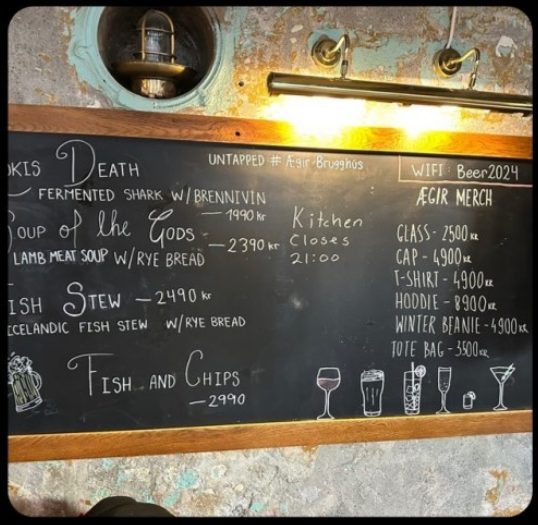 OKIS DEATH
FERMENTED SHARK W/BRENNIVIN
— 1990 kr
SOUP of the GODS — 2390 kr
LAMB MEAT SOUP W/RYE BREAD
ISH STEW — 2490 kr
ICELANDIC FISH STEW W/RYE BREAD
FISH AND CHIPS
— 2990
UNTAPPED # Ægir-Brugghús
Kitchen
Closes
21:00
WIFI: Beer2024
ÆGIR MERCH
GLASS - 2500 KR
CAP - 4900 KR
T-SHIRT - 4900 KR
HOODIE - 8900 KR
WINTER BEANIE - 4900 KR
TOTE BAG - 3500 KR